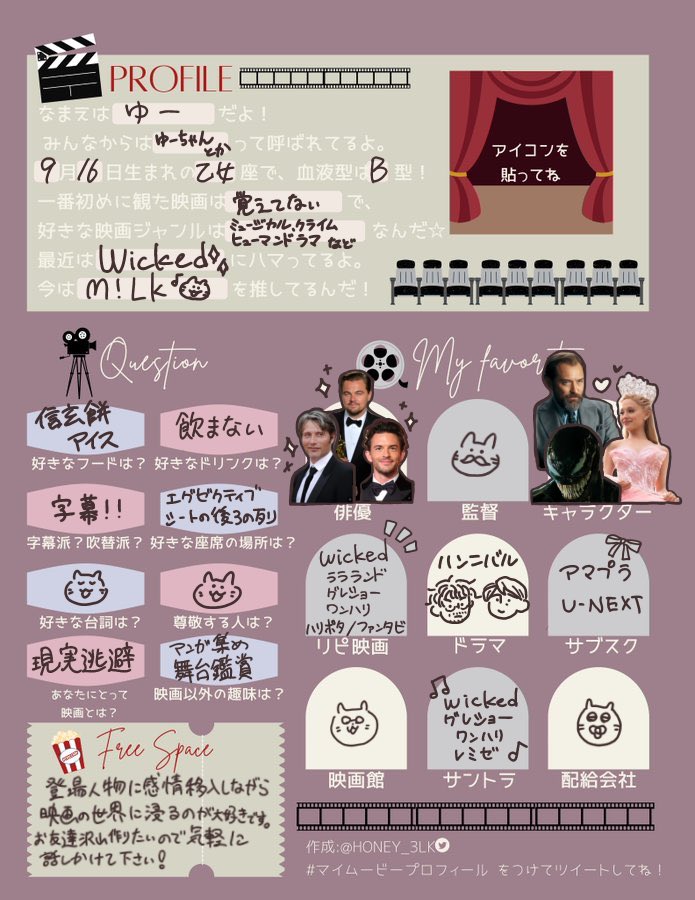 PROFILE
なまえは ゆー だよ!
みんなからは ゆーちゃんとか って呼ばれてるよ。
9月16日生まれの乙女座で、血液型はB型!
一番初めに観た映画は 覚えてない で、
好きな映画ジャンルは ミュージカル、クライム ヒューマンドラマ など なんだ☆
最近は Wicked にハマってるよ。
今は M!LK♪ を推してるんだ!
アイコンを
貼ってね
Question
信玄餅
アイス
好きなフードは?
飲まない
好きなドリンクは?
字幕!!
字幕派?吹替派?
エグゼクティブ
シートの後3の列
好きな座席の場所は?
好きな台詞は?
尊敬する人は?
現実逃避
あなたにとって
映画とは?
マンガ集め
舞台鑑賞
映画以外の趣味は?
My favorite
俳優
監督
キャラクター
wicked
ララランド
グレショー
ワンハリ
ハリポタ/ファンタビ
リピ映画
ハンニバル
ドラマ
アマプラ
U-NEXT
サブスク
映画館
wicked
グレショー
ワンハリ
レミゼ
サントラ
配給会社
Free Space
登場人物に感情移入しながら
映画の世界に浸るのが大好きです。
お友達沢山作りたいので気軽に
話しかけて下さい!
作成:@HONEY_3LK
#マイムービープロフィール をつけてツイートしてね!